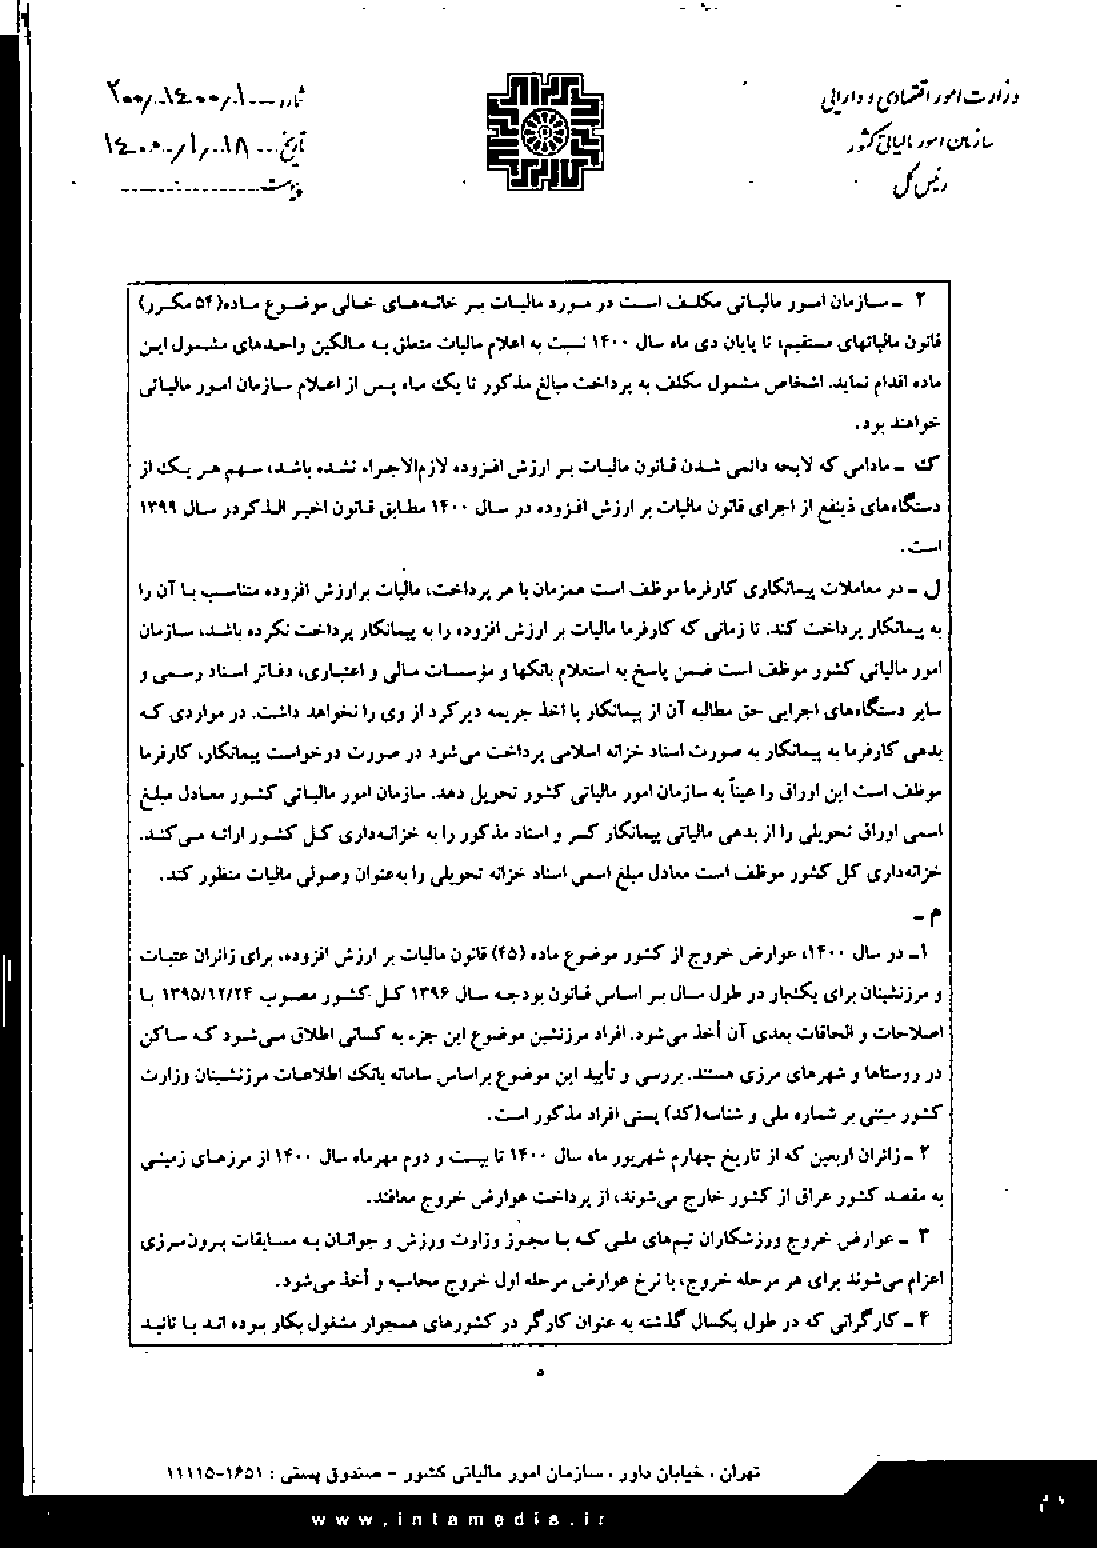 وزارت امور اقتصادی و دارایی
سازمان امور مالیاتی کشور
رئیس کل
شماره ۲۰۰/۱۴۰۰/۱
تاریخ ۱۴۰۰/۱/۱۸
پیوست
۲ - سازمان امور مالیاتی مکلف است در مورد مالیات بر خانه‌های خالی موضوع ماده(۵۴ مکرر)
قانون مالیاتهای مستقیم، تا پایان دی ماه سال ۱۴۰۰ نسبت به اعلام مالیات متعلق به مالکین واحدهای مشمول این
ماده اقدام نماید. اشخاص مشمول مکلف به پرداخت مبالغ مذکور تا یک ماه پس از اعلام سازمان امور مالیاتی
خواهند بود.
ک - مادامی که لایحه دائمی شدن قانون مالیات بر ارزش افزوده لازم‌الاجراء نشده باشد، سهم هر یک از
دستگاه‌های ذینفع از اجرای قانون مالیات بر ارزش افزوده در سال ۱۴۰۰ مطابق قانون اخیر الذکر در سال ۱۳۹۹
است.
ل - در معاملات پیمانکاری کارفرما موظف است همزمان با هر پرداخت، مالیات برارزش افزوده متناسب با آن را
به پیمانکار پرداخت کند. تا زمانی که کارفرما مالیات بر ارزش افزوده را به پیمانکار پرداخت نکرده باشد، سازمان
امور مالیاتی کشور موظف است ضمن پاسخ به استعلام بانکها و مؤسسات مالی و اعتباری، دفاتر اسناد رسمی و
سایر دستگاه‌های اجرایی حق مطالبه آن از پیمانکار یا اخذ جریمه دیرکرد از وی را نخواهد داشت. در مواردی که
بدهی کارفرما به پیمانکار به صورت اسناد خزانه اسلامی پرداخت می‌شود در صورت درخواست پیمانکار، کارفرما
موظف است این اوراق را عیناً به سازمان امور مالیاتی کشور تحویل دهد. سازمان امور مالیاتی کشور معادل مبلغ
اسمی اوراق تحویلی را از بدهی مالیاتی پیمانکار کسر و اسناد مذکور را به خزانه‌داری کل کشور ارائه می‌کند.
خزانه‌داری کل کشور موظف است معادل مبلغ اسمی اسناد خزانه تحویلی را به‌عنوان وصولی مالیات منظور کند.
م -
۱- در سال ۱۴۰۰، عوارض خروج از کشور موضوع ماده (۴۵) قانون مالیات بر ارزش افزوده، برای زائران عتبات
و مرزنشینان برای یکبار در طول سال بر اساس قانون بودجه سال ۱۳۹۶ کل کشور مصوب ۱۳۹۵/۱۲/۲۴ با
اصلاحات و الحاقات بعدی آن أخذ می‌شود. افراد مرزنشین موضوع این جزء به کسانی اطلاق می‌شود که ساکن
در روستاها و شهرهای مرزی هستند. بررسی و تأیید این موضوع براساس سامانه بانک اطلاعات مرزنشینان وزارت
کشور مبتنی بر شماره ملی و شناسه(کد) پستی افراد مذکور است.
۲ - زائران اربعین که از تاریخ چهارم شهریور ماه سال ۱۴۰۰ تا بیست و دوم مهرماه سال ۱۴۰۰ از مرزهای زمینی
به مقصد کشور عراق از کشور خارج می‌شوند، از پرداخت عوارض خروج معافند.
۳ - عوارض خروج ورزشکاران تیم‌های ملی که با مجوز وزارت ورزش و جوانان به مسابقات برون‌مرزی
اعزام می‌شوند برای هر مرحله خروج، با نرخ عوارض مرحله اول خروج محاسبه و أخذ می‌شود.
۴ - کارگرانی که در طول یکسال گذشته به عنوان کارگر در کشورهای همجوار مشغول بکار بوده اند با تائید
۵
تهران ، خیابان داور ، سازمان امور مالیاتی کشور - صندوق پستی : ۱۶۵۱-۱۱۱۱۵
www.intamedia.ir